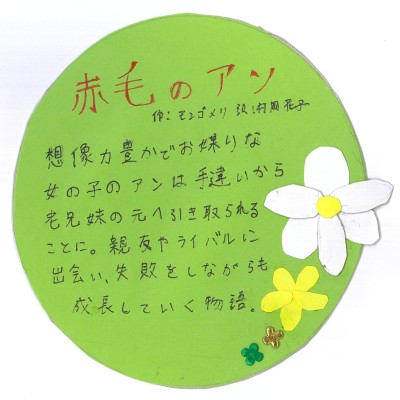 赤毛のアン
作：モンゴメリ 訳：村岡花子
想像力豊かでお媒りな
女の子のアンは手違いから
老兄妹の元へ引き取られる
ことに。親友やライバルに
出会い、失敗をしながらも
成長していく物語。